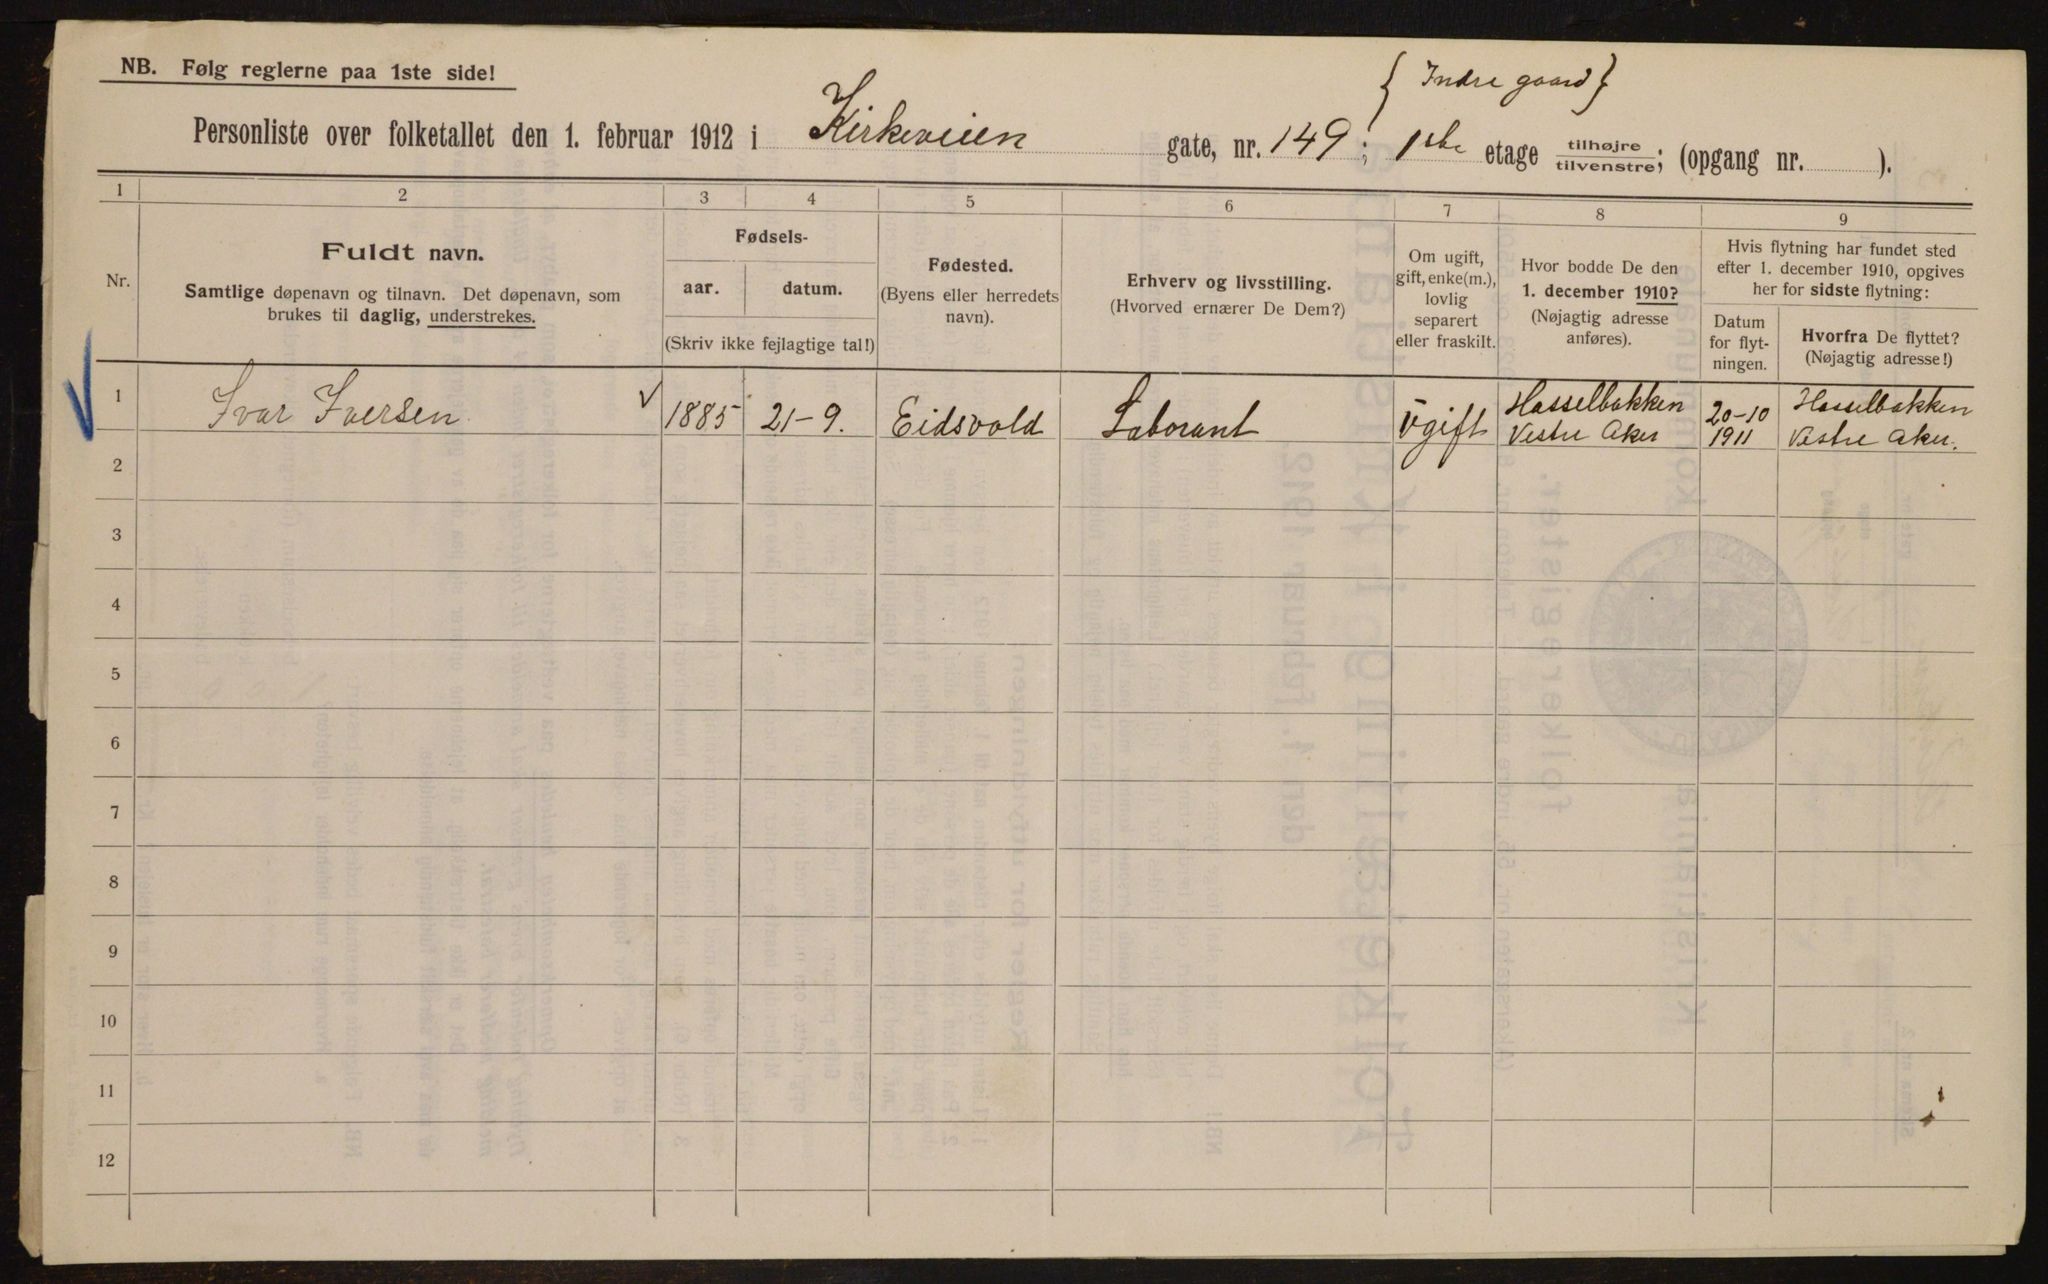 NB. Følg reglerne paa 1ste side!
{ Indre gaard }
Personliste over folketallet den 1. februar 1912 i Kirkeveien gate, nr. 149; 1ste etage tilhøjre/tilvenstre; (opgang nr. ).
1 2 3 4 5 6 7 8 9
Nr.
Fuldt navn.
Samtlige døpenavn og tilnavn. Det døpenavn, som
brukes til daglig, understrekes.
Fødsels-
aar. datum.
(Skriv ikke fejlagtige tal!)
Fødested.
(Byens eller herredets
navn).
Erhverv og livsstilling.
(Hvorved ernærer De Dem?)
Om ugift,
gift, enke(m.),
lovlig
separert
eller fraskilt.
Hvor bodde De den
1. december 1910?
(Nøjagtig adresse
anføres).
Hvis flytning har fundet sted
efter 1. december 1910, opgives
her for sidste flytning:
Datum
for flyt-
ningen.
Hvorfra De flyttet?
(Nøjagtig adresse!)
1 Ivar Iversen 1885 21-9. Eidsvold Laborant Ugift Hasselbakken Vestre Aker 20-10 1911 Hasselbakken Vestre Aker.
2
3
4
5
6
7
8
9
10
11
12